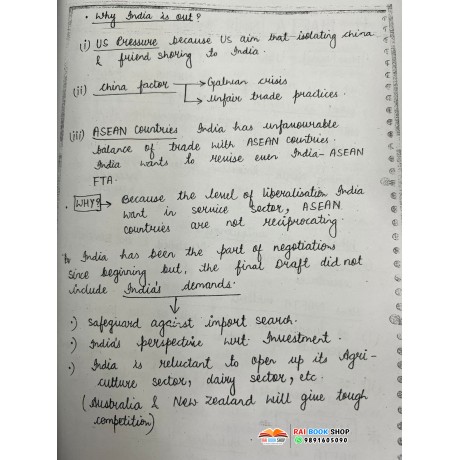 • Why India is out?
(i) US Pressure because US aim that isolating china
& friend shoring to India.
(ii) china factor → Galwan crisis
→ Unfair trade practices.
(iii) ASEAN Countries India has unfavourable
balance of trade with ASEAN countries.
India wants to revise even India-ASEAN
FTA.
• WHY? → Because the level of liberalisation India
want in service sector, ASEAN
countries are not reciprocating.
India has been the part of negotiations
since beginning but, the final Draft did not
include India's demands.
•) Safeguard against import search.
•) India's perspective wrt. Investment.
•) India is reluctant to open up its Agri-
culture sector, dairy sector, etc.
(Australia & New Zealand will give tough
competition)
RAI BOOK SHOP
9891605090